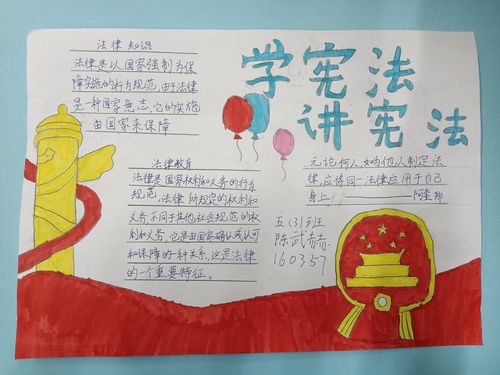 学宪法
讲宪法
法律知识
法律是以国家强制力保
障实施的行为规范,由于法律
是一种国家意志,它的实施
由国家来保障
法律教育
法律是国家权利和义务的行为
规范,法律所规定的权利和
义务不同于其他社会规范的权
利和义务,它是由国家确认或认可
和保障的一种关系,这是法律
的一个重要特征。
无论何人,如为他人制定法
律,应将同一法律应用于自己
身上。——阿奎那
五(3)班
陈武赫
160357